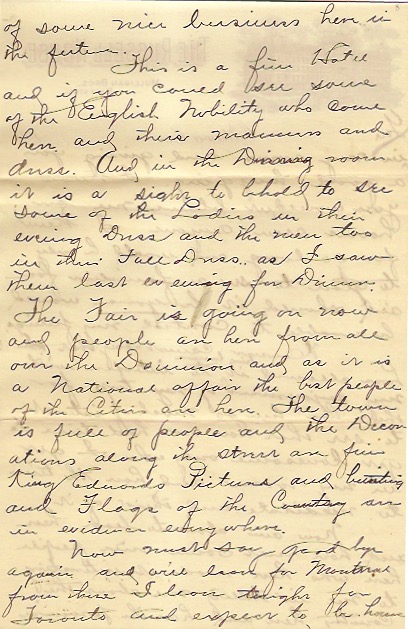 of some nice business here in
the future.
This is a fine Hotel
and if you could see some
of the English Nobility who come
here and their manners and
dress. And in the Dinning room
it is a sight to behold to see
some of the Ladies in their
evening Dress and the men too
in their Full Dress. as I saw
them last evening for Dinner.
The Fair is going on now
and people are here from all
over the Dominion and as it is
a National affair the best people
of the Cities are here. The town
is full of people and the Decor
ations along the street are fine
King Edwards Pictures and bunting
and Flags of the Country are
in evidence everywhere.
Now must say good bye
again and will leave for Montreal
from there I leave tonight for
Toronto and expect to be home